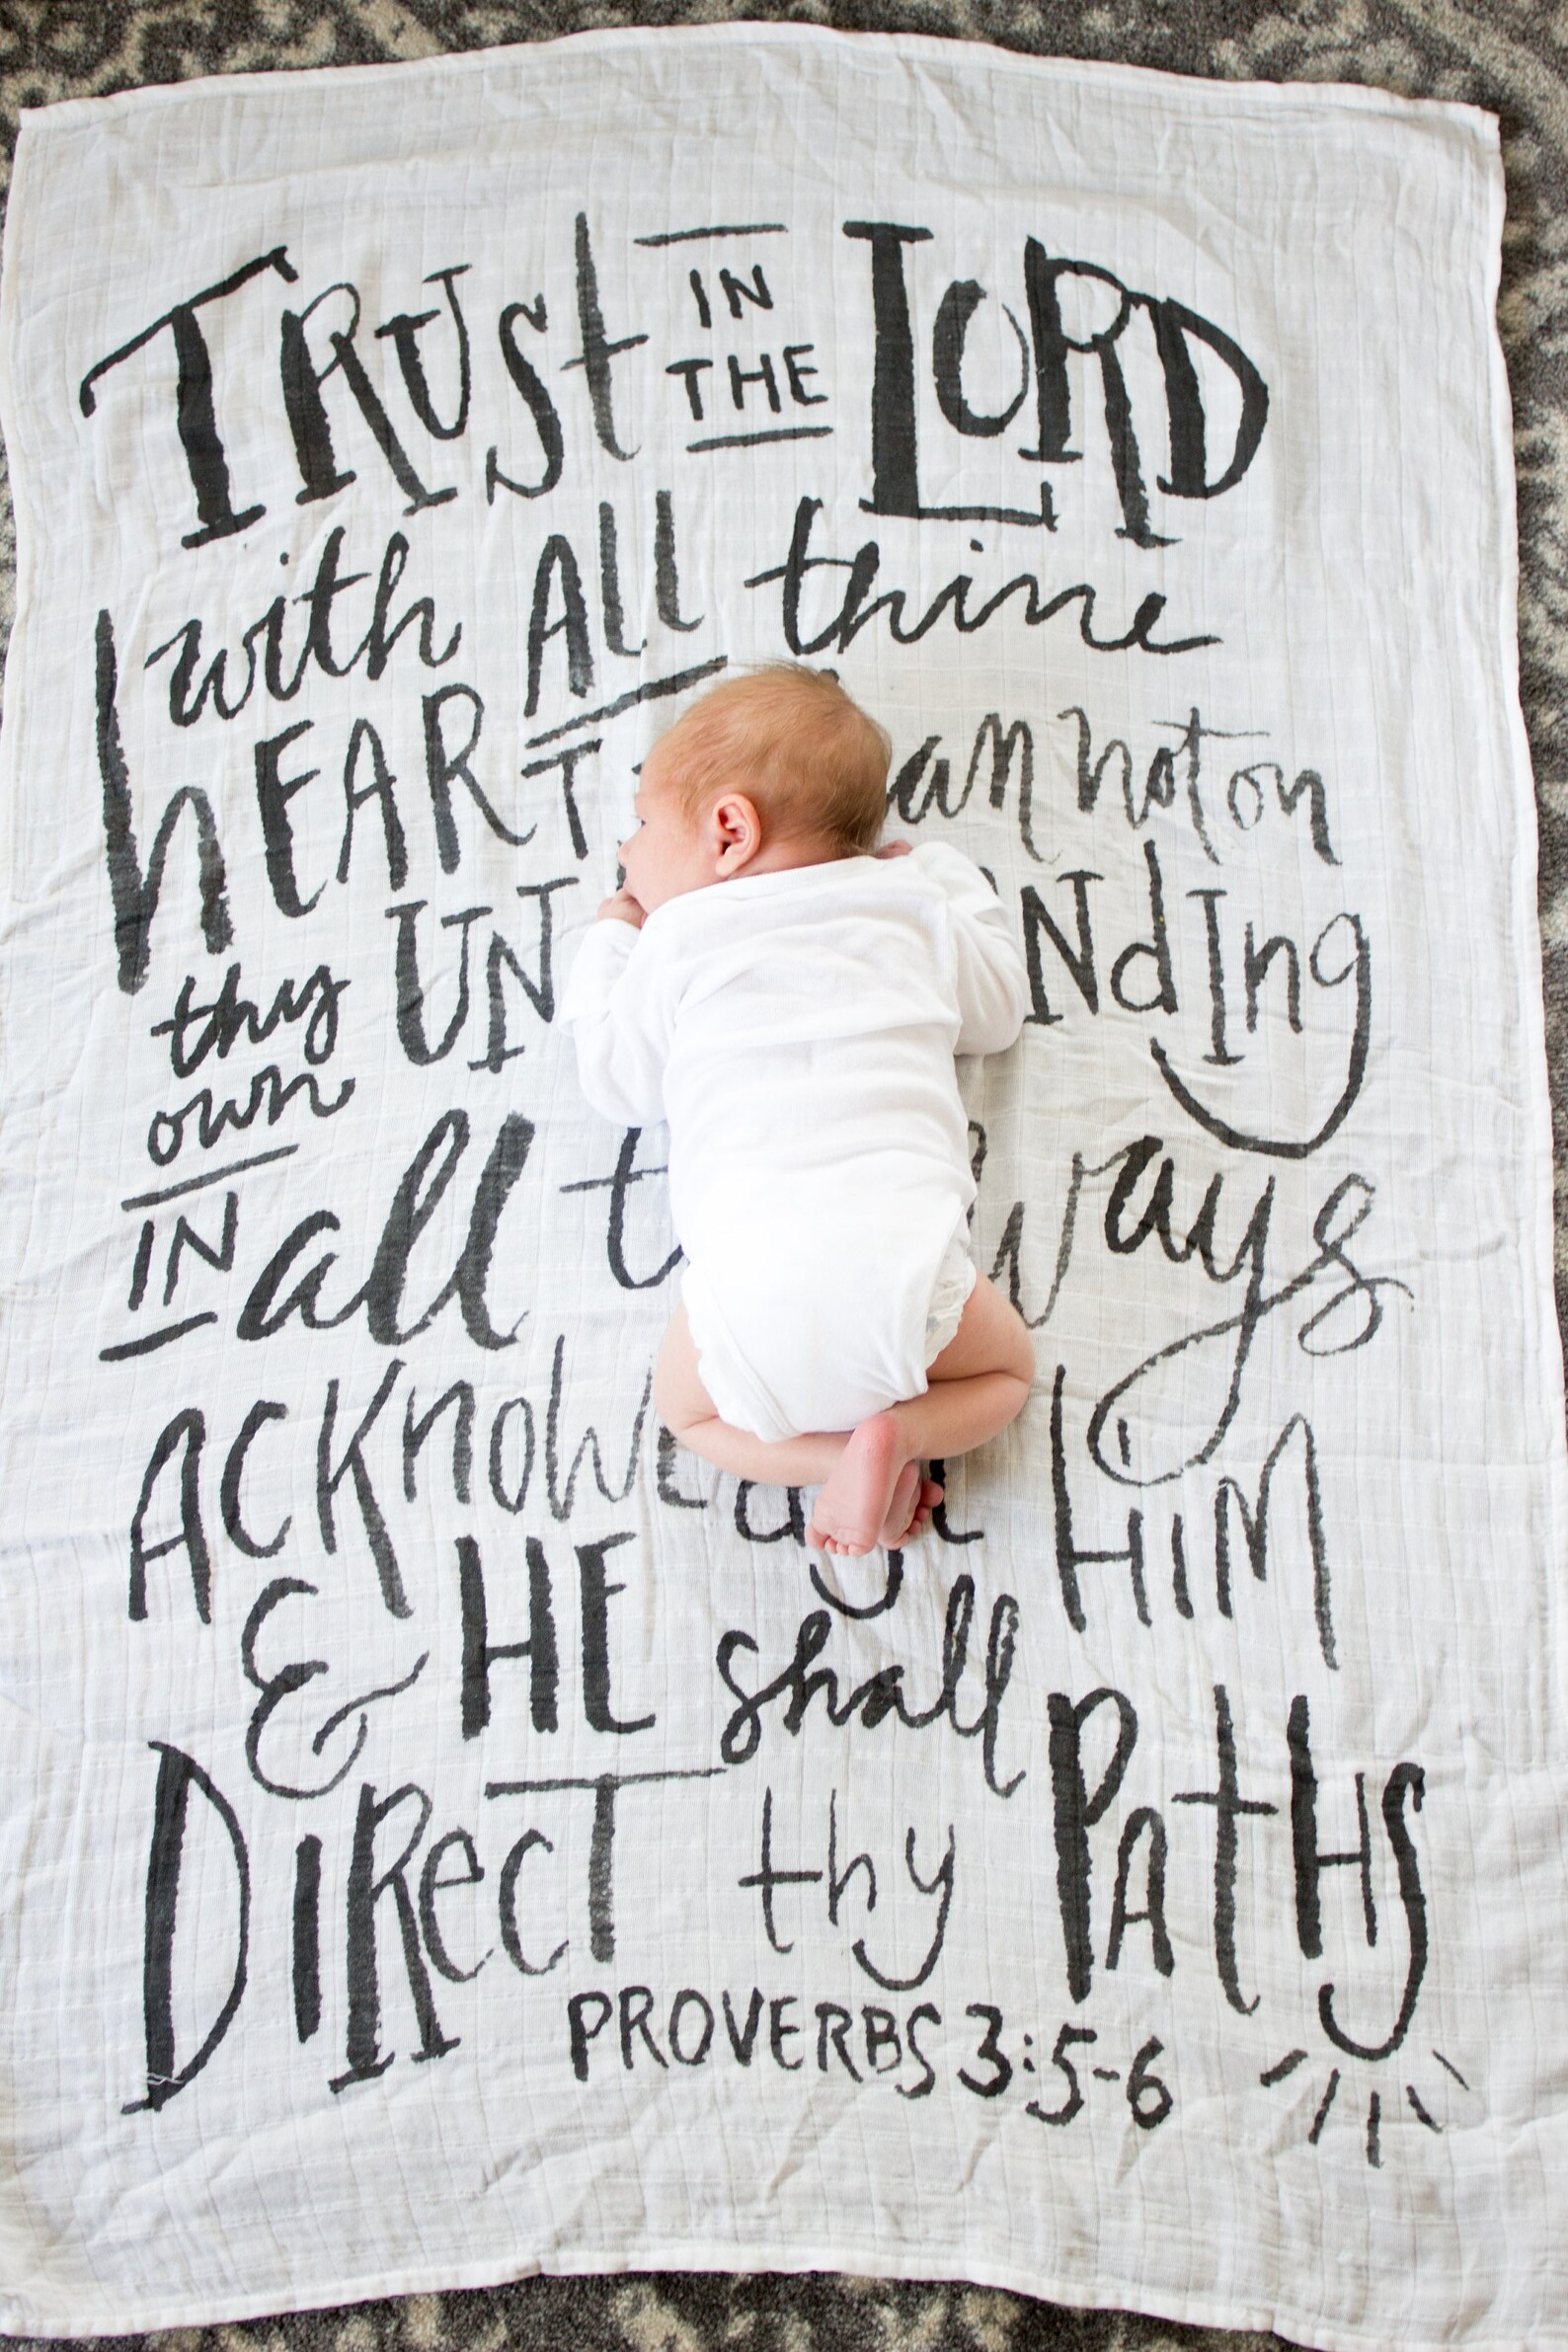 Trust IN THE LORD
with All thine
hEART lean not on
thy own UNderstandIng
IN all thy ways
ACKnowledge HIM
& HE shall
DIRecT thy PAtHs
PROVERBS 3:5-6